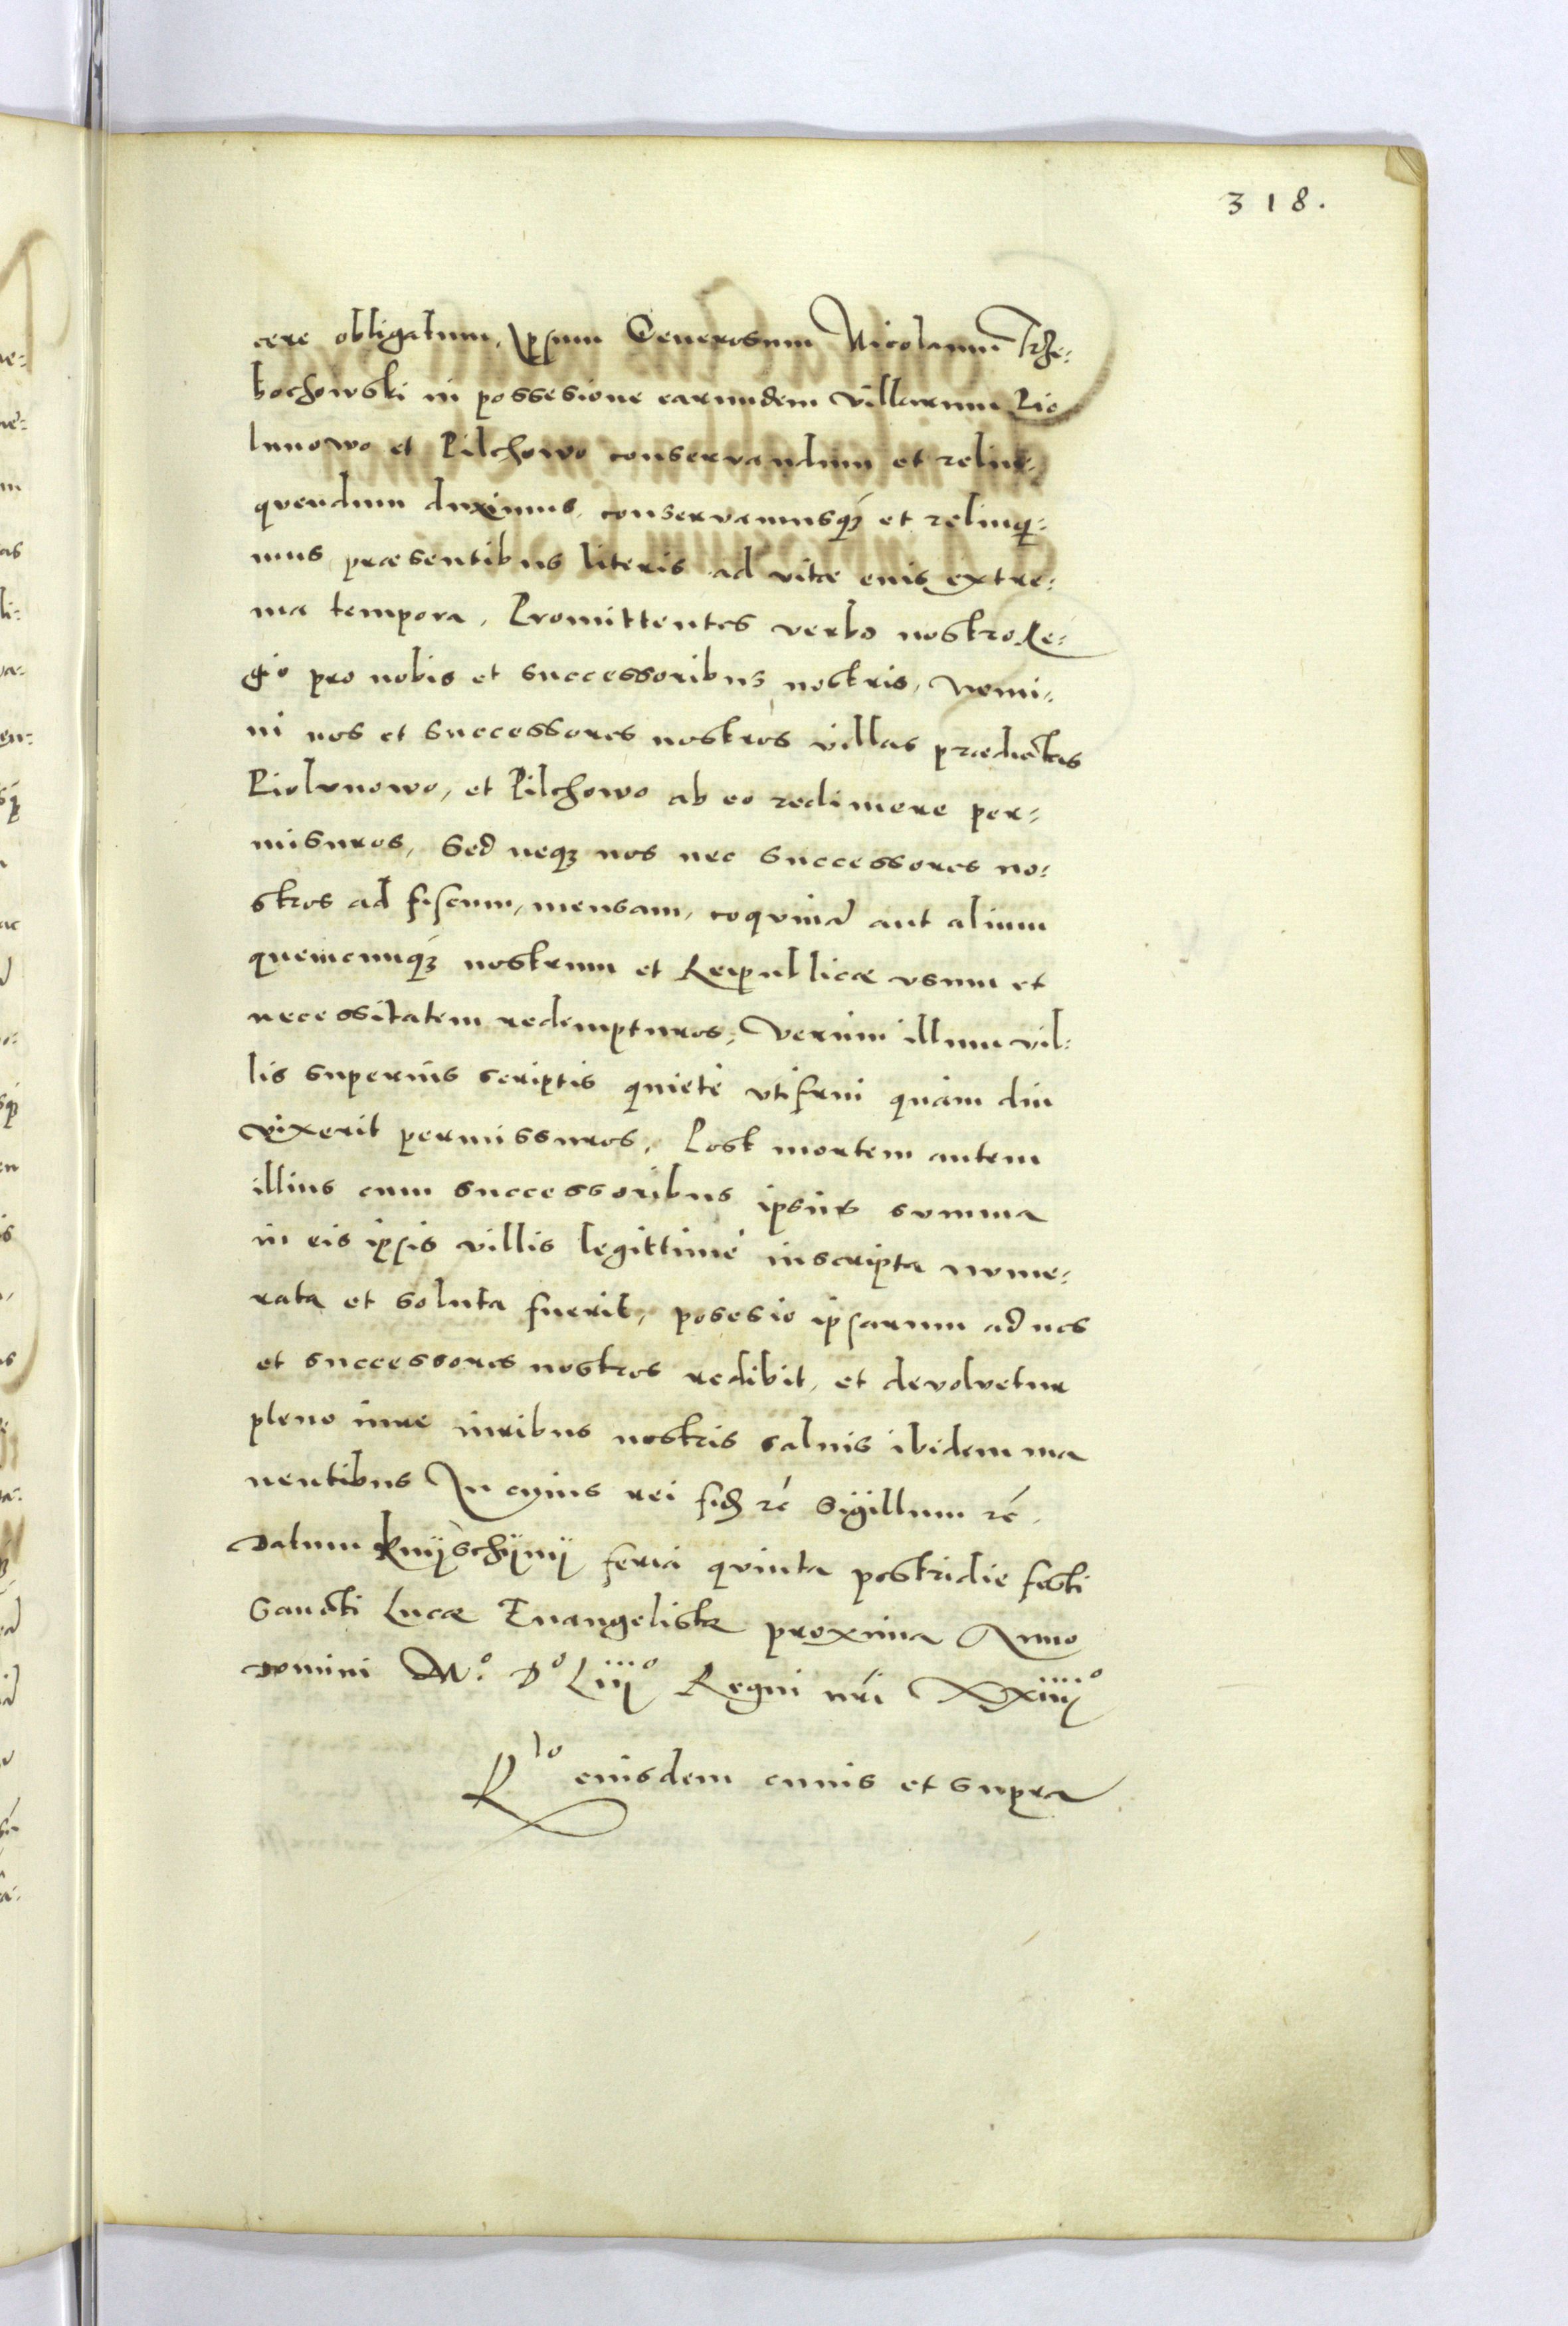 318.
cere obligatum, Ipsum Generosum Nicolaum Trze⸗
bochowski in possesione earundem villarum Pio
lunowo et Pilchowo conservandum et relin⸗
quendum duximus, conservamusq₃ et relinq⸗
mus præsentibus literis ad vitæ euis extre⸗
ma tempora, Promittentes verbo nostro Re⸗
gio pro nobis et successoribus nostris, nemi⸗
ni nos et successores nostros villas prædictas
Piolunowo, et Pilchowo ab eo redimere per⸗
misuros, Sed neq₃ nos nec successores no⸗
stros ad fiscum, mensam, coquinā aut alium
quemcunq₃ nostrum et Reipublicæ vsum et
necessitatem redempturos, Verùm illum vil⸗
lis superius scriptis quietè vtifrui quàm diu
vixerit permissuros, Post mortem autem
illius cum successoribus ipsius summa
in eis ipsis villis legittimè inscripta nume⸗
rata et soluta fuerit, posesio ipsarum ad nos
et successores nostros redibit, et devolvetur
pleno iure iuribus nostris saluis ibidem ma
nentibus In cuius rei fidꝫ rc̄ Sigillum rc̄.
Datum Knÿschÿnÿ feria quinta postridie festi
Sancti Lucæ Euangelistæ proxima Anno
Domini Mº. Dº Liiijº Regni nr̄i XXiiijº
Rlº eiusdem cuuis et supra